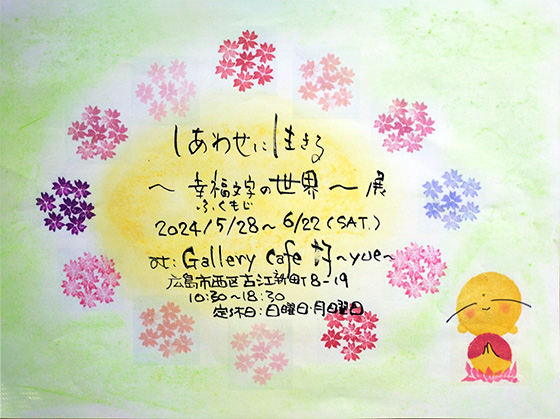 しあわせに生きる
～幸福文字の世界～展
ふくもじ
2024/5/28～6/22(SAT.)
at: Gallery cafe 月～yue～
広島市西区古江新町8-19
10:30～18:30
定休日:日曜日・月曜日